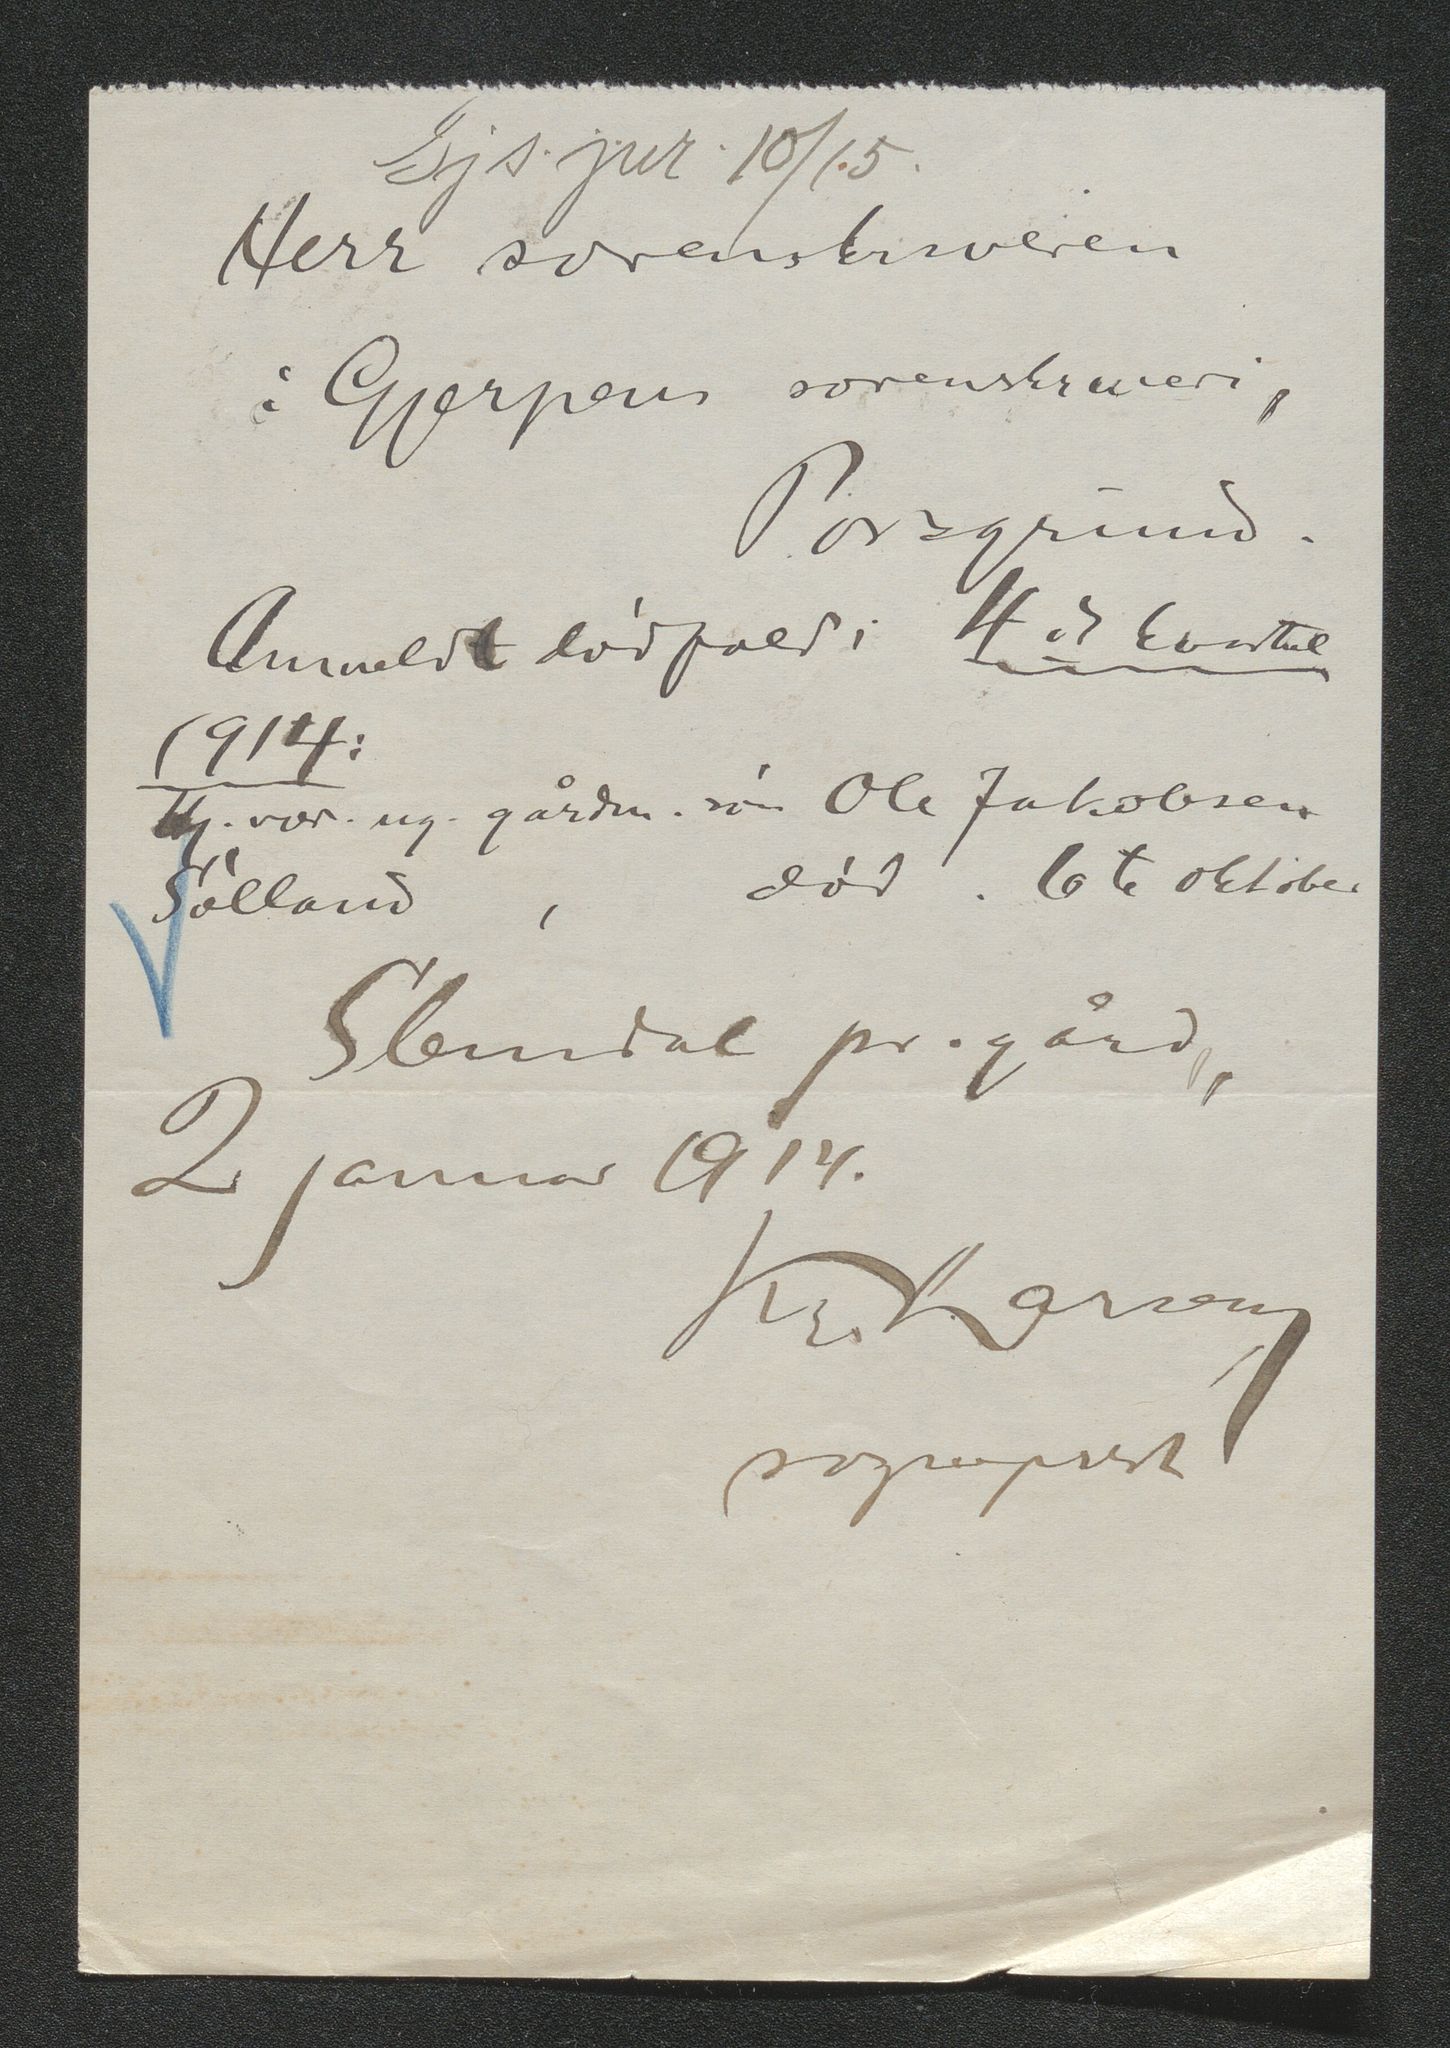 Gjs. jur. 10/1.15.
Herr sorenskriveren
i Gjerpens sorenskriveri,
Porsgrund.
Anmeldt dødsfald i 4 de kvartal
1914:
ug. gårdm. søn Ole Jakobsen
Solland, død. 6te oktober
Slemdal pr.gård,
2 januar 1914.
Kr. Larsen
sogneprest